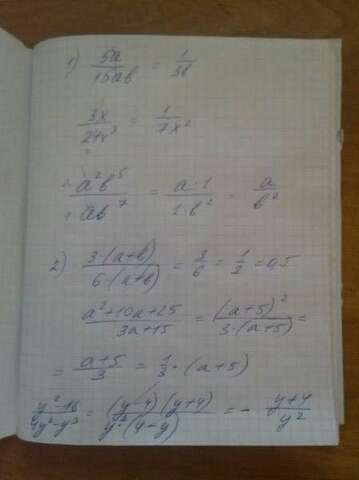 1) 5a/15ab = 1/3b
3x/21x³ = 1/7x²
a²b⁵/ab⁷ = a·1/1·b² = a/b²
2) 3·(a+b)/6·(a+b) = 3/6 = 1/2 = 0,5
a²+10a+25/3a+15 = (a+5)²/3·(a+5) =
= a+5/3 = 1/3·(a+5)
y²-16/4y²-y³ = (y-4)(y+4)/y²·(4-y) = - y+4/y²